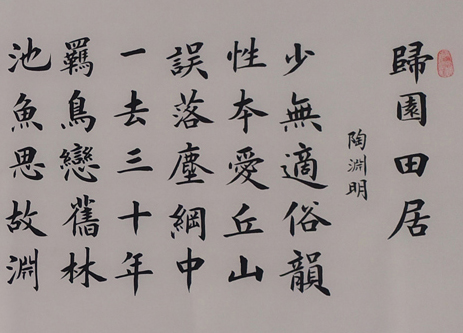 歸園田居
陶淵明
少無適俗韻
性夲愛丘山
誤落塵網中
一去三十年
羈鳥戀舊林
池魚思故淵